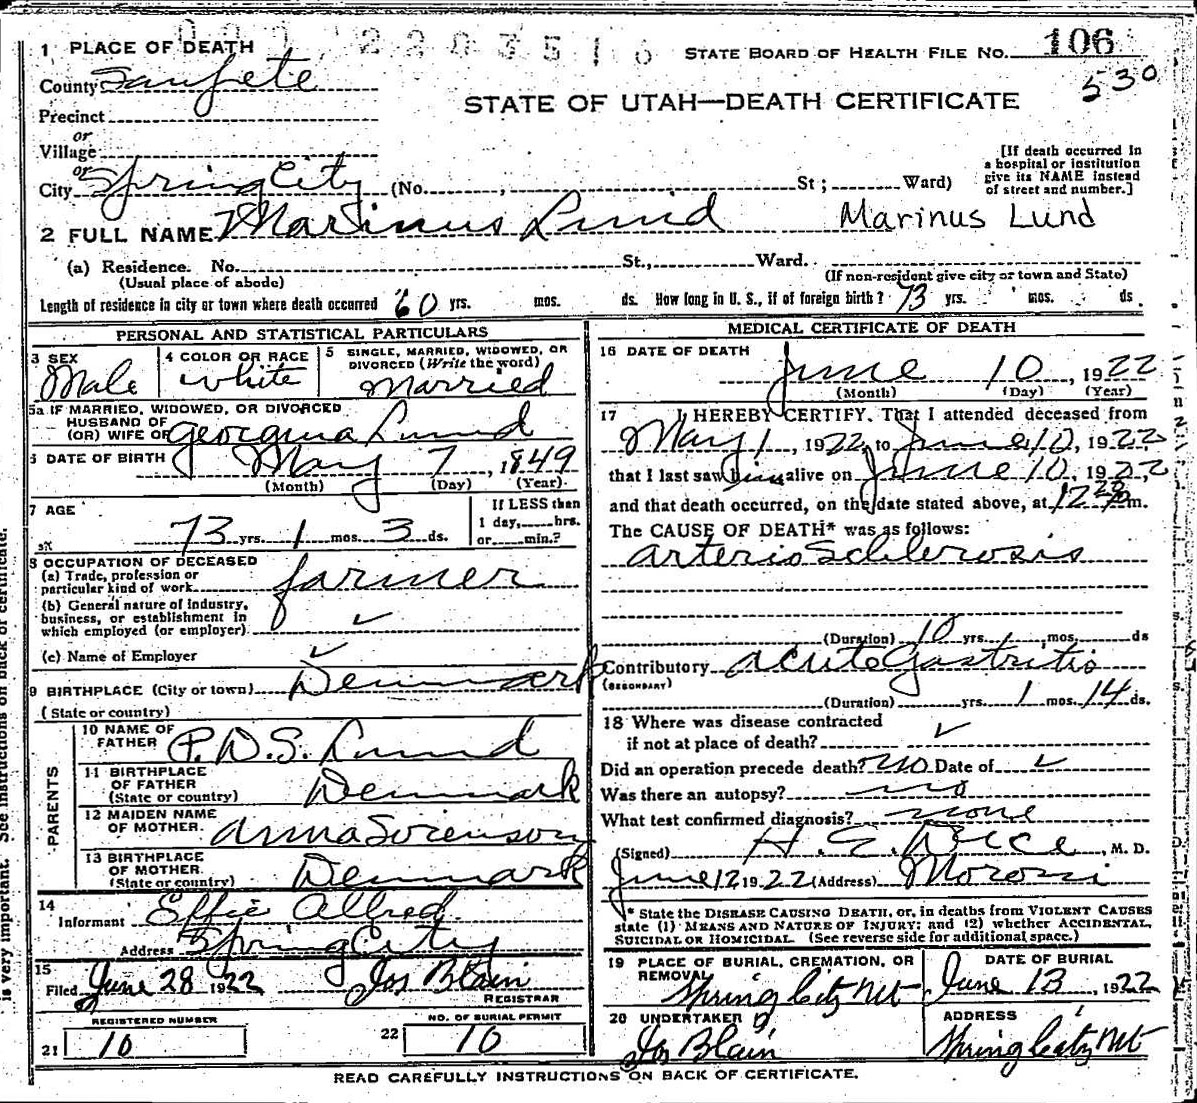 1 PLACE OF DEATH
STATE BOARD OF HEALTH FILE No. 106
530
County Sanpete
STATE OF UTAH—DEATH CERTIFICATE
Precinct
or
Village
or
City Spring City (No. , St ; Ward)
[If death occurred in a hospital or institution give its NAME instead of street and number.]
2 FULL NAME Marinus Lund Marinus Lund
(a) Residence. No. St., Ward.
(Usual place of abode) (If non-resident give city or town and State)
Length of residence in city or town where death occurred 60 yrs. mos. ds. How long in U. S., if of foreign birth ? 73 yrs. mos. ds.
PERSONAL AND STATISTICAL PARTICULARS
3 SEX
Male
4 COLOR OR RACE
white
5 SINGLE, MARRIED, WIDOWED, OR DIVORCED (Write the word)
Married
5a IF MARRIED, WIDOWED, OR DIVORCED
HUSBAND OF
(OR) WIFE OF Georgina Lund
6 DATE OF BIRTH May 7, 1849
(Month) (Day) (Year).
7 AGE
73 yrs. 1 mos. 3 ds.
If LESS than
1 day, hrs.
or min.?
8 OCCUPATION OF DECEASED
(a) Trade, profession or
particular kind of work farmer
(b) General nature of industry,
business, or establishment in
which employed (or employer). ✓
(c) Name of Employer ✓
9 BIRTHPLACE (City or town) Denmark
(State or country)
PARENTS
10 NAME OF
FATHER P.D.S. Lund
11 BIRTHPLACE
OF FATHER
(State or country) Denmark
12 MAIDEN NAME
OF MOTHER. Anna Sorenson
13 BIRTHPLACE
OF MOTHER.
(State or country) Denmark
14
Informant Effie Allred
Address Spring City
15
Filed June 28 1922 Jos Blain
REGISTRAR
REGISTERED NUMBER
21 10
NO. OF BURIAL PERMIT
22 10
MEDICAL CERTIFICATE OF DEATH
16 DATE OF DEATH
June 10, 1922
(Month) (Day) (Year)
17 I HEREBY CERTIFY. That I attended deceased from
May 1, 1922, to June 10, 1922,
that I last saw him alive on June 10, 1922,
and that death occurred, on the date stated above, at 12 m.
The CAUSE OF DEATH* was as follows:
arterio Schlerosis
(Duration) 10 yrs. mos. ds
Contributory acute Gastritis
(SECONDARY)
(Duration) yrs. 1 mos. 14 ds.
18 Where was disease contracted
if not at place of death? ✓
Did an operation precede death? no Date of ✓
Was there an autopsy? no
What test confirmed diagnosis? none
(Signed) H. E. , M. D.
June 12 1922 (Address) Moroni
* State the DISEASE CAUSING DEATH, or, in deaths from VIOLENT CAUSES
state (1) MEANS AND NATURE OF INJURY; and (2) whether ACCIDENTAL,
SUICIDAL OR HOMICIDAL. (See reverse side for additional space.)
19 PLACE OF BURIAL, CREMATION, OR
REMOVAL
Spring City Ut
DATE OF BURIAL
June 13, 1922
20 UNDERTAKER
Jos Blain
ADDRESS
Spring City Ut
READ CAREFULLY INSTRUCTIONS ON BACK OF CERTIFICATE.
is very important. See instructions on back of certificate.